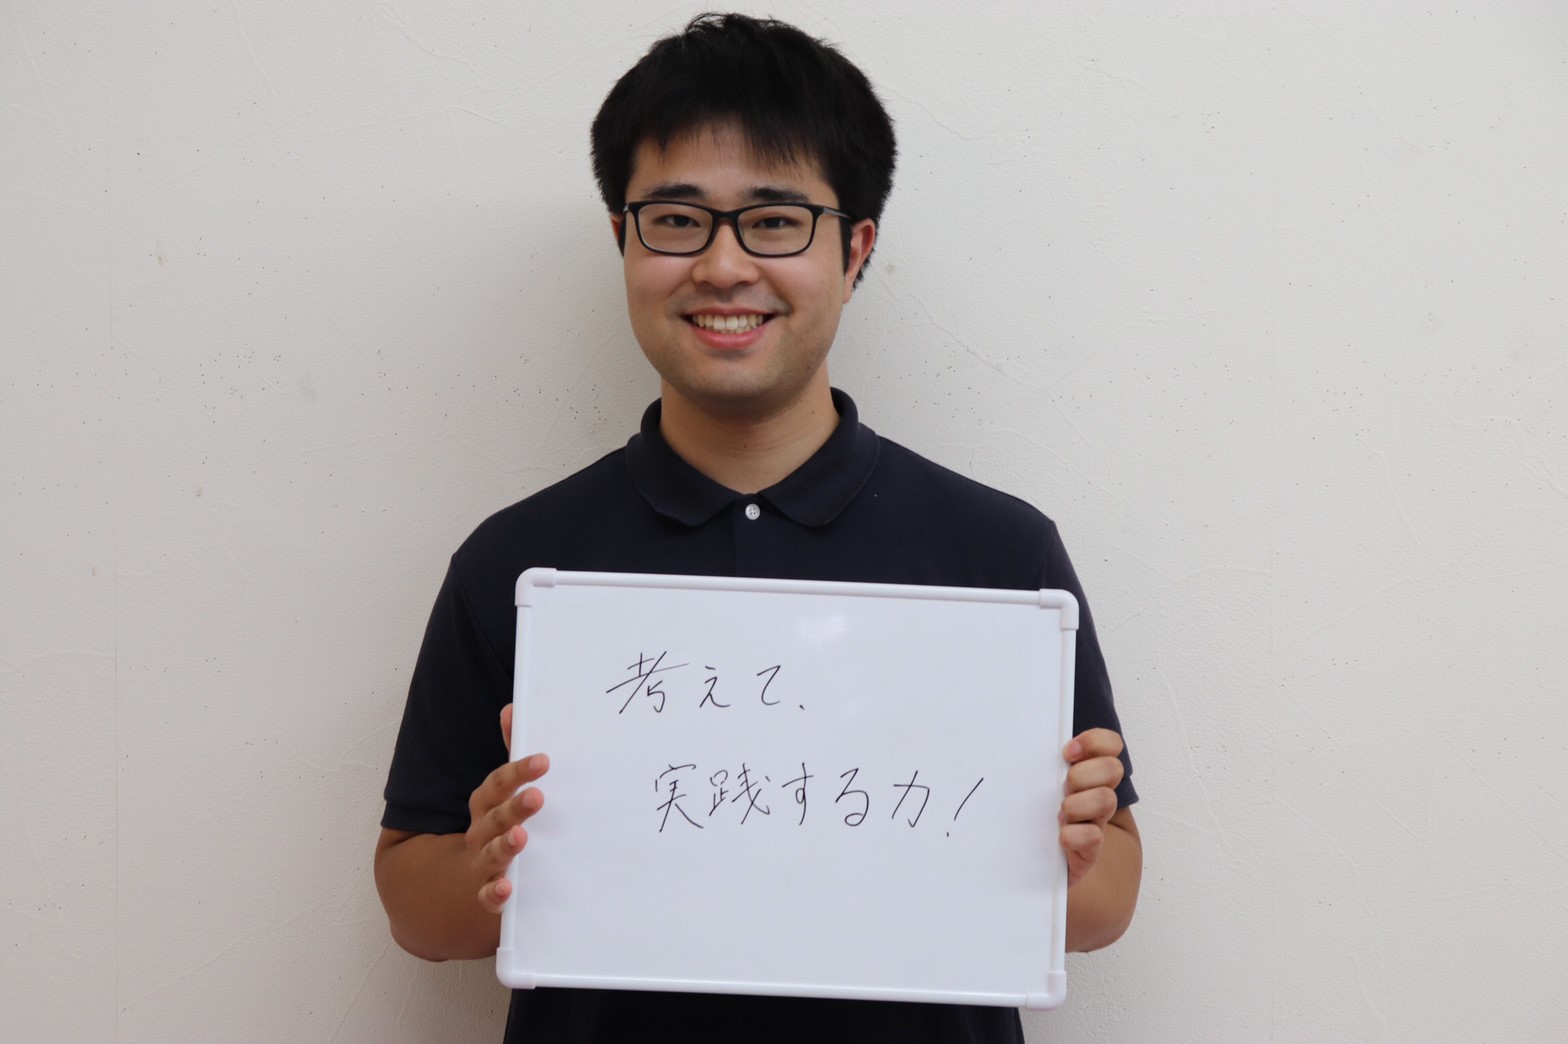 考えて、
実践する力!